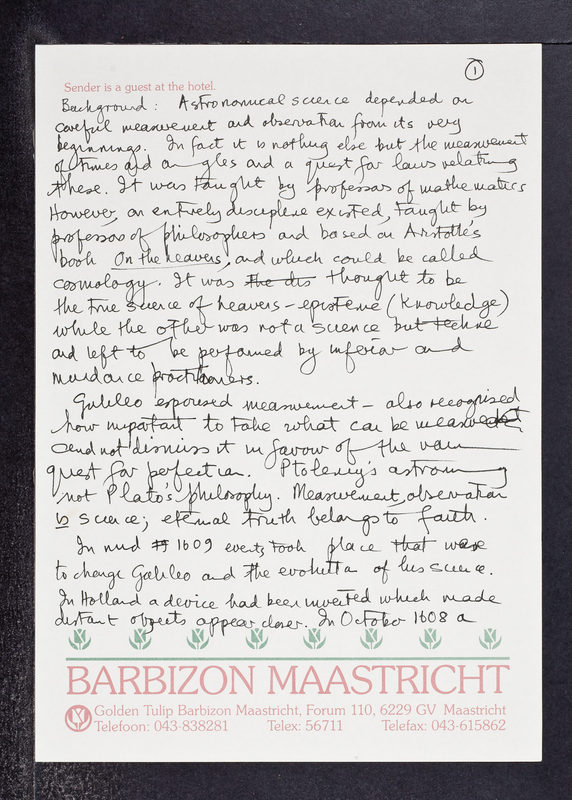 1
Sender is a guest at the hotel.
Background: Astronomical science depended on
careful measurement and observation from its very
beginnings. In fact it is nothing else but the measurement
of times and an gles and a quest for laws relating
these. It was taught by professors of mathematics
However, an entirely discipline existed, taught by
professors of philosophers and based on Aristotle's
book On the heavens, and which could be called
cosmology. It was the dis thought to be
the true science of heavens - episteme (knowledge)
while the other was not a science but techne
and left to be performed by inferior and
mundance practitioners.
Galileo espoused measurement - also recognised
how important to take what can be measured
and not dismiss it in favour of the vain
quest for perfection. Ptolemy's astronomy
not Plato's philosophy. Measurement, observation
is science; eternal truth belongs to faith.
In mid 1609 events took place that were
to change Galileo and the evolution of his science.
In Holland a device had been invented which made
distant objects appear closer. In October 1608 a
BARBIZON MAASTRICHT
Golden Tulip Barbizon Maastricht, Forum 110, 6229 GV Maastricht
Telefoon: 043-838281 Telex: 56711 Telefax: 043-615862